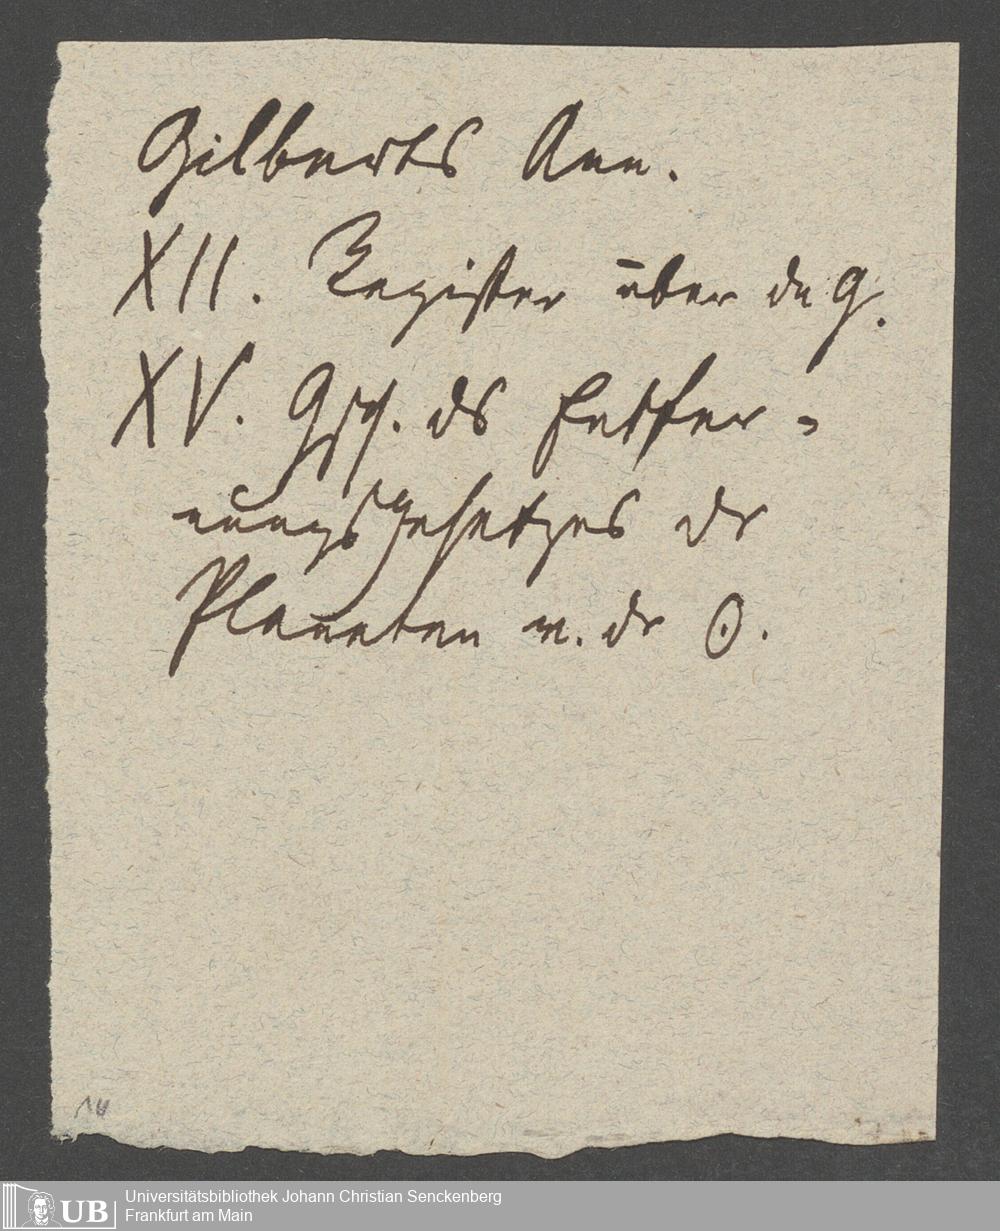 Gilberts Ann.
XII. Register über die G.
XV. Gsch. ds Entfer-
nungsgesetzes dr
Planeten v. dr ☉.
14
UB Universitätsbibliothek Johann Christian Senckenberg
Frankfurt am Main